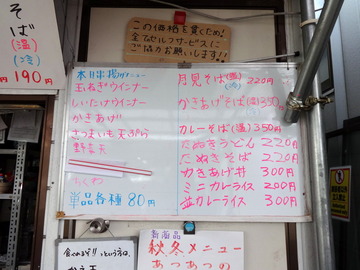 そば
(温)
(冷)
円190円
この価格を貫くため!
全てセルフサービスに
ご協力お願いします!!
本日出揚げメニュー
玉ねぎウインナー
しいたけウインナー
かきあげ
さつまいも天ぷら
野菜天
ちくわ
単品各種80円
月見そば(温)(冷)220円
かきあげそば(温)350円
カレーそば(温)350円
たぬきうどん220円
たぬきそば220円
かきあげ丼300円
ミニカレーライス200円
並カレーライス300円
食べます!!という方は、
新商品
秋冬メニュー
あつあつの